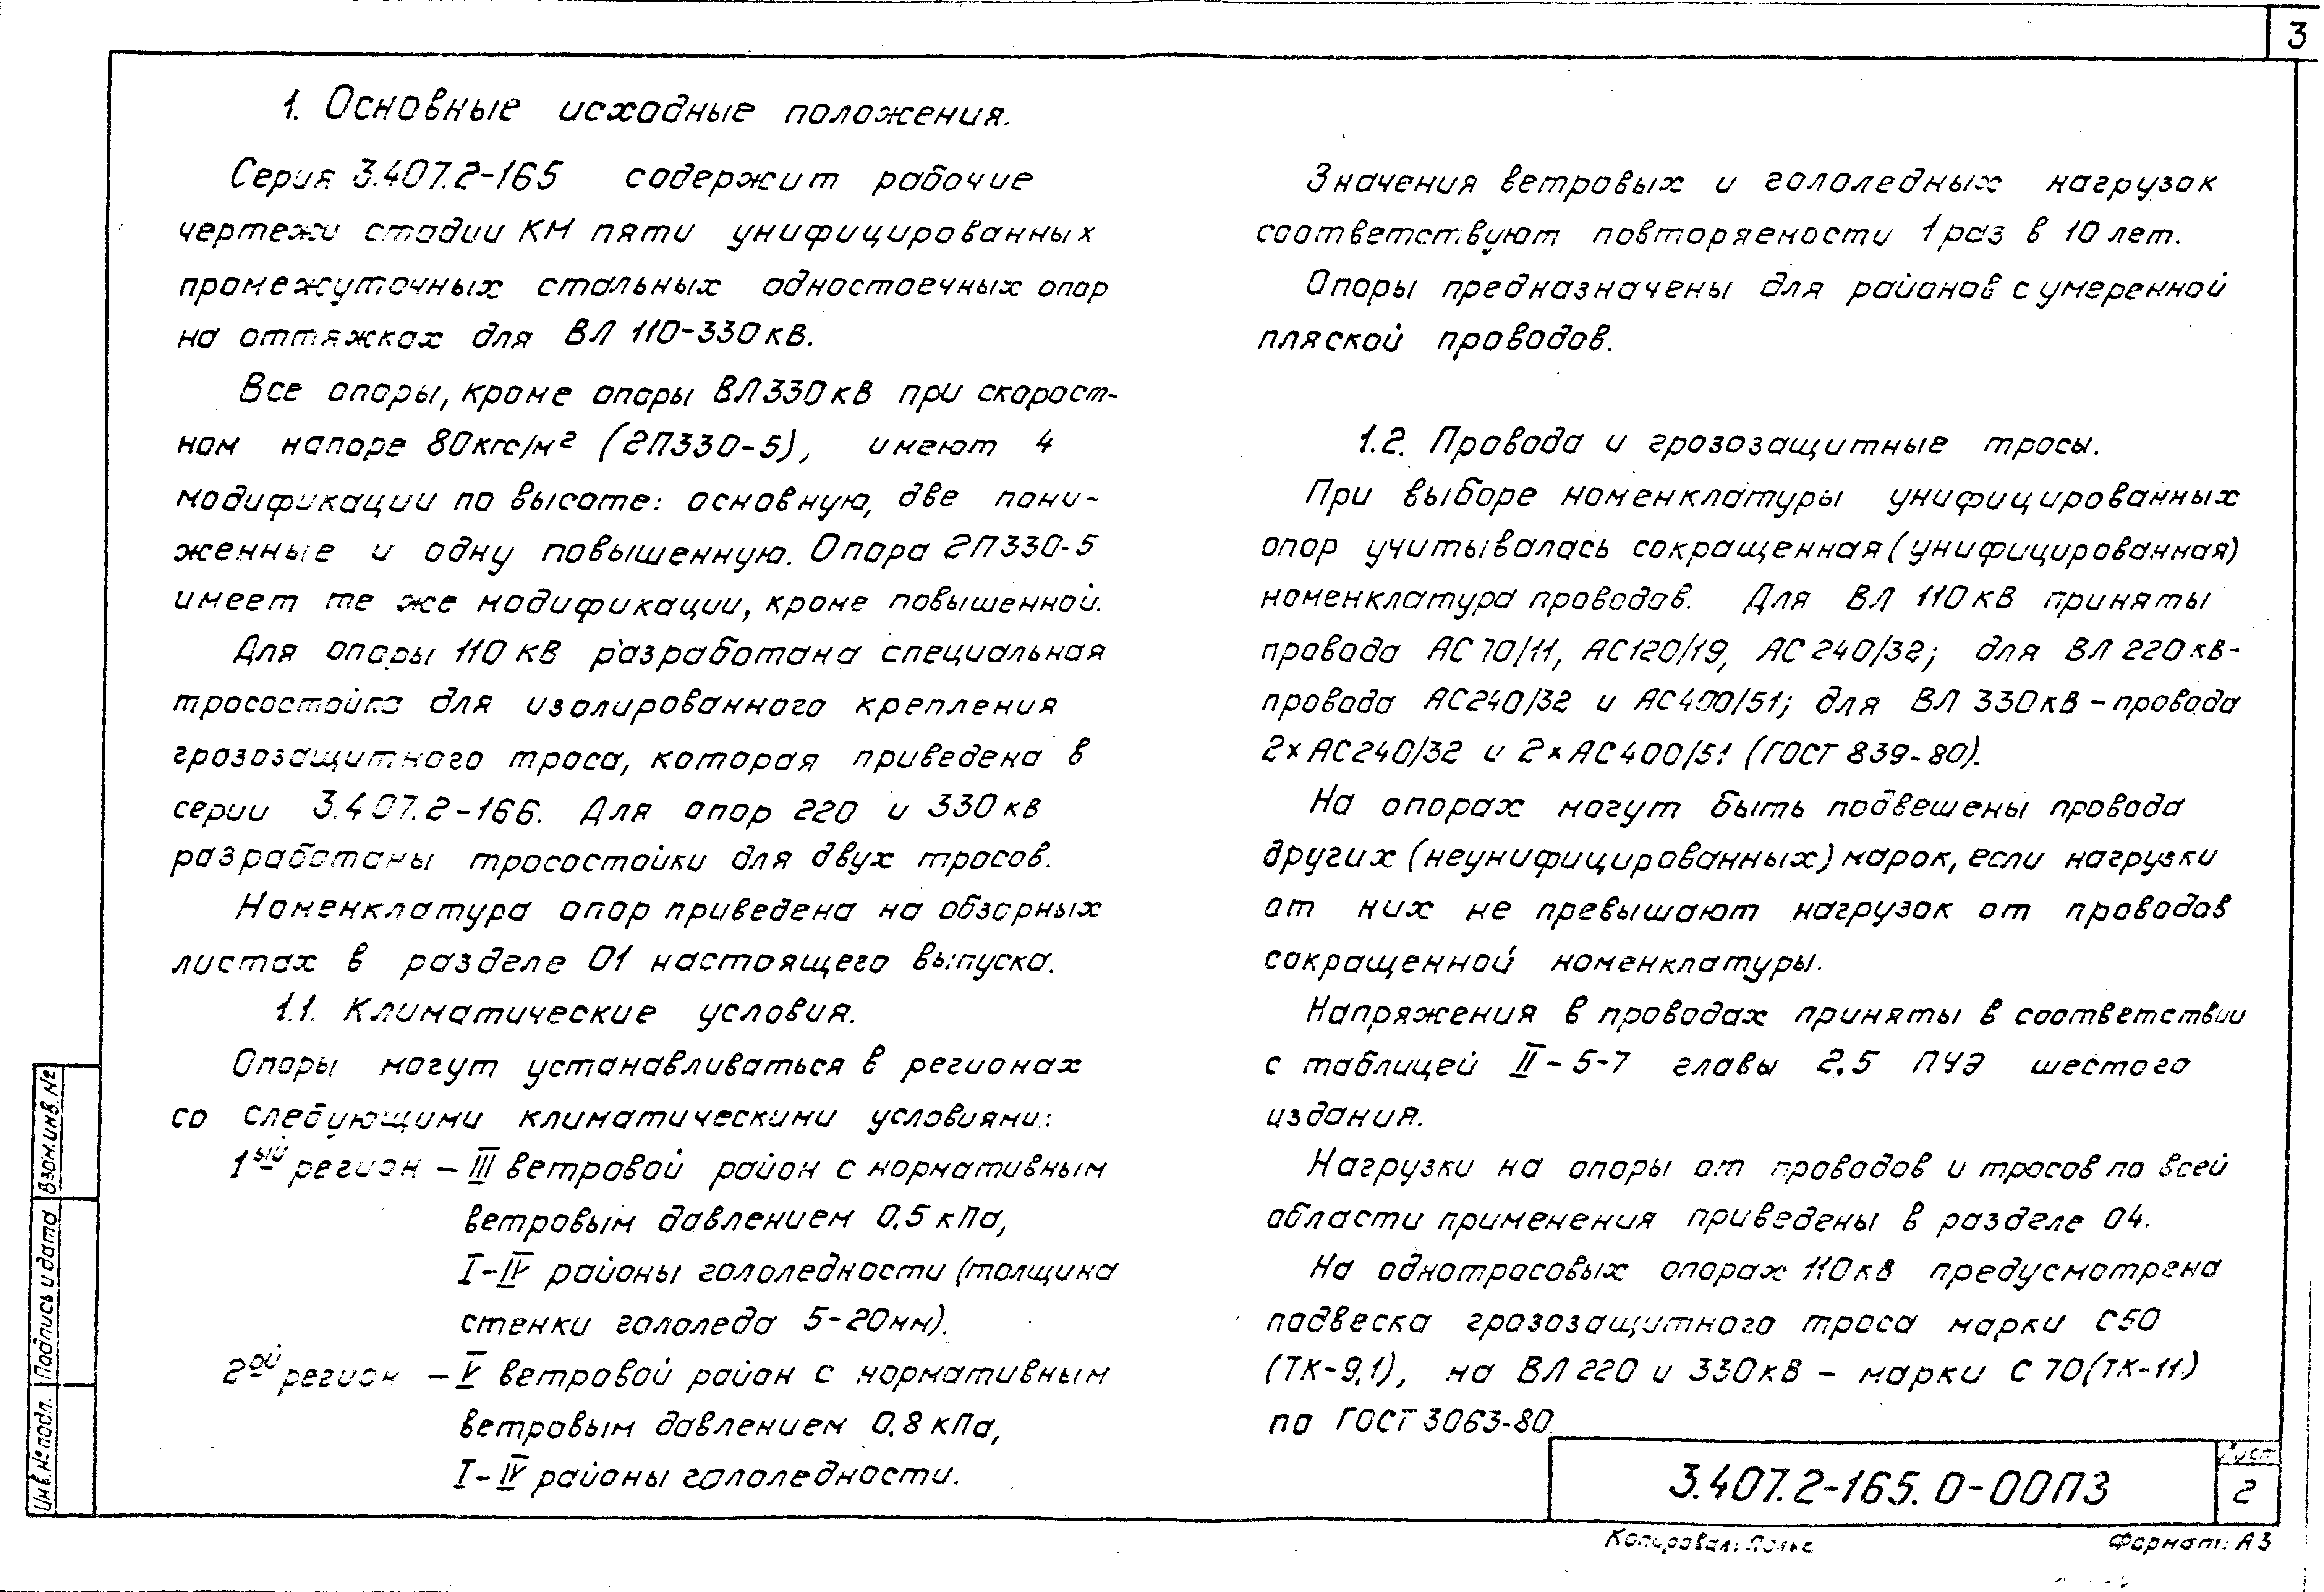 3
1. Основные исходные положения.
Серия 3.407.2-165 содержит рабочие
чертежи стадии КМ пяти унифицированных
промежуточных стальных одностоечных опор
на оттяжках для ВЛ 110-330 кВ.
Все опоры, кроме опоры ВЛ 330 кВ при скорост-
ном напоре 80 кгс/м² (2П330-5), имеют 4
модификации по высоте: основную, две пони-
женные и одну повышенную. Опора 2П330-5
имеет те же модификации, кроме повышенной.
Для опоры 110 кВ разработана специальная
тросостойка для изолированного крепления
грозозащитного троса, которая приведена в
серии 3.407.2-166. Для опор 220 и 330 кв
разработаны тросостойки для двух тросов.
Номенклатура опор приведена на обзорных
листах в разделе 01 настоящего выпуска.
1.1. Климатические условия.
Опоры могут устанавливаться в регионах
со следующими климатическими условиями:
1ый регион – III ветровой район с нормативным
ветровым давлением 0.5 кПа,
I-IV районы гололедности (толщина
стенки гололеда 5-20мм).
2ой регион – V ветровой район с нормативным
ветровым давлением 0.8 кПа,
I-IV районы гололедности.
Значения ветровых и гололедных нагрузок
соответствуют повторяемости 1 раз в 10 лет.
Опоры предназначены для районов с умеренной
пляской проводов.
1.2. Провода и грозозащитные тросы.
При выборе номенклатуры унифицированных
опор учитывалась сокращенная (унифицированная)
номенклатура проводов. Для ВЛ 110 кВ приняты
провода АС 70/11, АС120/19, АС 240/32; для ВЛ 220 кв-
провода АС240/32 и АС400/51; для ВЛ 330 кВ – провода
2×АС240/32 и 2×АС400/51 (ГОСТ 839-80).
На опорах могут быть подвешены провода
других (неунифицированных) марок, если нагрузки
от них не превышают нагрузок от проводов
сокращенной номенклатуры.
Напряжения в проводах приняты в соответствии
с таблицей II-5-7 главы 2.5 ПУЭ шестого
издания.
Нагрузки на опоры от проводов и тросов по всей
области применения приведены в разделе 04.
На однотросовых опорах 110 кв предусмотрена
подвеска грозозащитного троса марки С50
(ТК-9,1), на ВЛ 220 и 330 кВ – марки С 70 (ТК-11)
по ГОСТ 3063-80.
3.407.2-165.0-00ПЗ
Лист
2
Копировал:
Формат: А3
Инв.№ подл.
Подпись и дата
Взам.инв.№